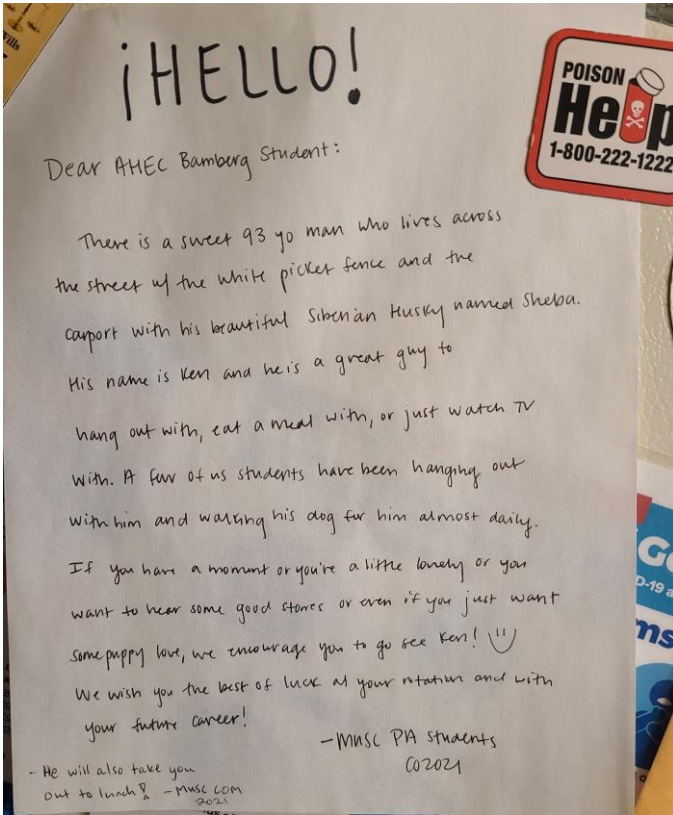 ¡HELLO!
POISON
Help
1-800-222-1222
Dear AHEC Bamberg Student:
There is a sweet 93 yo man who lives across
the street w/ the white picket fence and the
carport with his beautiful Siberian Husky named Sheba.
His name is Ken and he is a great guy to
hang out with, eat a meal with, or just watch TV
with. A few of us students have been hanging out
with him and walking his dog for him almost daily.
If you have a moment or you're a little lonely or you
want to hear some good stories or even if you just want
some puppy love, we encourage you to go see Ken!
We wish you the best of luck at your rotation and with
your future career!
-MUSC PA students
CO2021
- He will also take you
out to lunch! -MUSC COM
2021